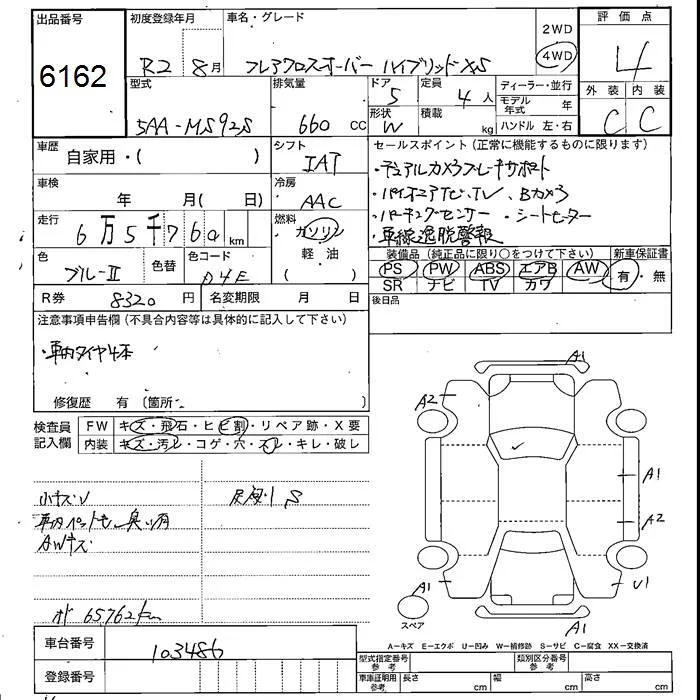 出品番号
6162
初度登録年月
R2 8月
車名・グレード
フレアクロスオーバー ハイブリッドXS
2WD
4WD
評価点
4
外装 内装
C C
型式
5AA-MS92S
排気量
660 CC
ドア
5
形状
W
定員
4人
積載
kg
ディーラー・並行
モデル年式 年
ハンドル 左・右
車歴
自家用・( )
シフト
IAT
セールスポイント (正常に機能するものに限ります)
・デュアルカメラブレーキサポート
・パイオニアナビ、TV、Bカメラ
・パーキングセンサー ・シートヒーター
・車線逸脱警報
車検
年 月( 日)
冷房
AAC
走行
6万5千760km
燃料
ガソリン
軽油
( )
色
ブルーII
色替
色コード
D4E
装備品 (純正品に限り○をつけて下さい) 新車保証書
PS PW ABS エアB AW 有・無
SR ナビ TV カワ
後日品
R券 8320円
名変期限 月 日
注意事項申告欄 (不具合内容等は具体的に記入して下さい)
・車内タイヤ4本
修復歴 有 (箇所
検査員記入欄
FW キズ・飛石・ヒビ割・リペア跡・X要
内装 キズ・汚レ・コゲ・穴・スレ・キレ・破レ
小キズU
下廻りS
車内ペット毛、臭い有
AWキズ
オド 65762km
A1
A2
A1
A2
A1
U1
A1
スペア
A-キズ E-エクボ U-凹み W-補修跡 S-サビ C-腐食 XX-交換済
車台番号
103486
登録番号
型式指定番号 参考
類別区分番号 参考
車庫証明用 参考
長さ cm
幅 cm
高さ cm